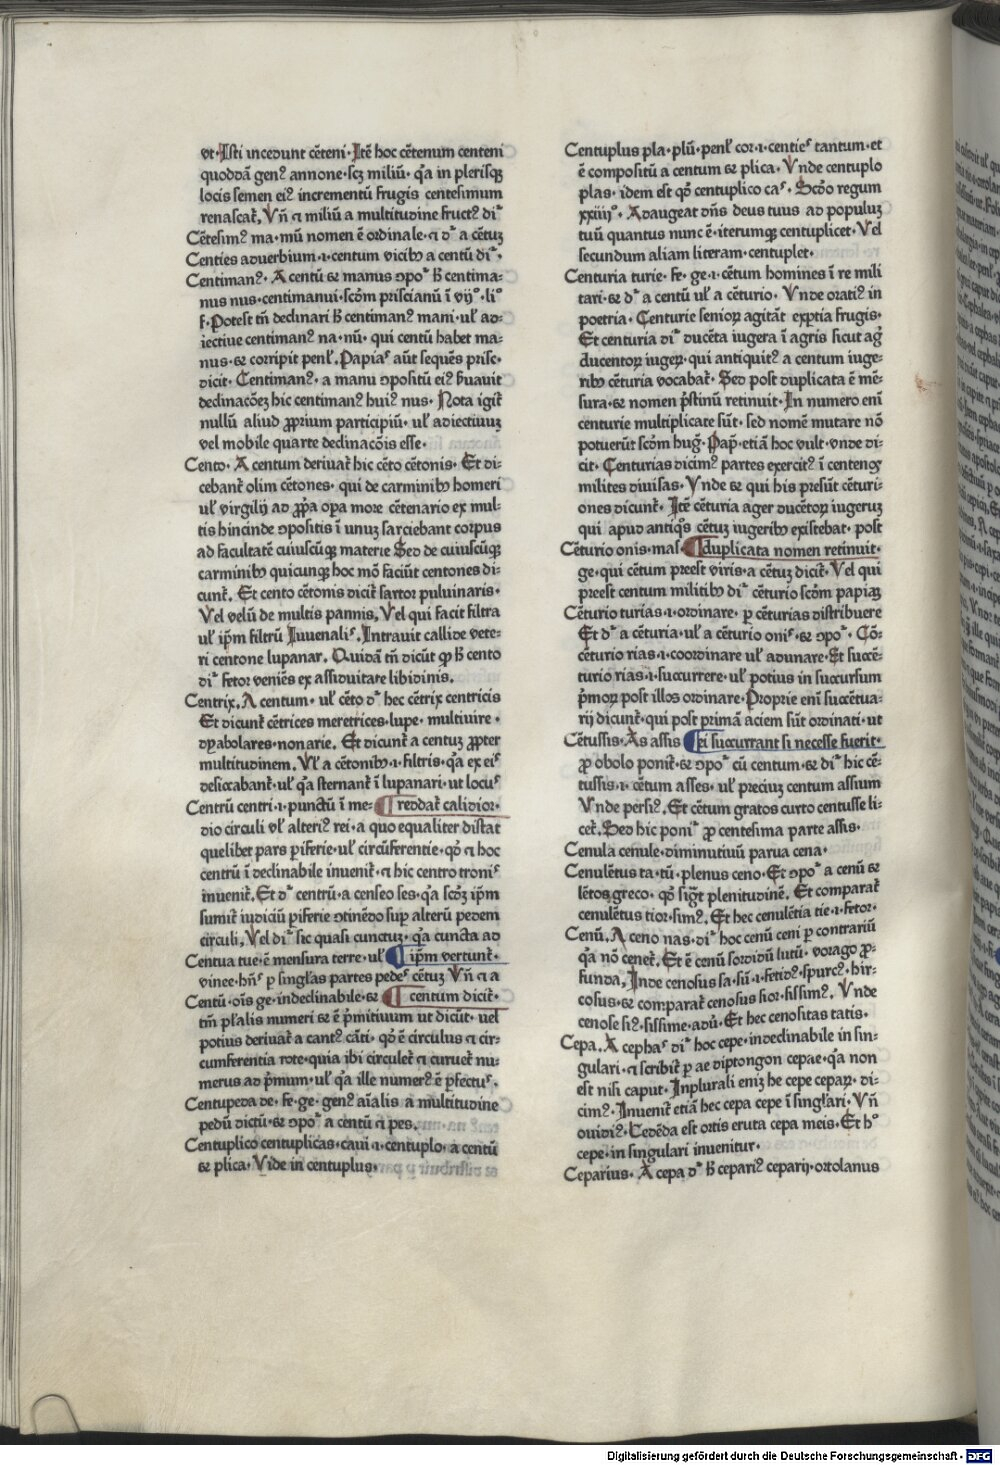 vt·Isti incedunt cēteni·Itē hoc cētenum centeni
quoddā genꝰ annone·scʒ miliū· q̄a in plerisqʒ
locis semen eiꝰ incrementū frugis centesimum
renascat̄, Vn̄ ⁊ miliū a multitudine fructꝰ di͛
Cētesimꝰ ma·mū nomen ē ordinale·⁊ d͛ a cētuʒ
Centies aduerbium·i·centum vicibꝰ a centū di͛·
Centimanꝰ· A centū & manus ↄpo͛ h̄ centima-
nus nus·centimanui·scd̄m priscianū ī vijº·liº
f·Potest tn̄ declinari h̄ centimanꝰ mani·ul̄ ad-
iectiue centimanꝰ na·nū· qui centū habet ma-
nus·& corripit penl̄, Papiaˢ aūt sequēs prisc·
dicit· Centimanꝰ·a manu ↄpositū eiꝰ ẜuauit
declinacōeʒ hic centimanꝰ huiꝰ nus· Nota igit̄
nullū aliud ꝓprium participiū· ul̄ adiectiuuʒ
vel mobile quarte declinacōis esse·
Cento· A centum deriuat̄ hic cēto cētonis· Et di-
cebant̄ olim cētones· qui de carminibꝰ homeri
ul̄ virgilij ad ꝓp̄a opa more cētenario ex mul-
tis hincinde ↄpositis ī unuʒ sarciebant corpus
ad facultatē cuiuscūqʒ materie Sed de cuiuscūqʒ
carminibꝰ quicunqʒ hoc mō faciūt centones di-
cunt̄, Et cento cētonis dicit̄ sartor puluinaris·
Vel velū de multis pannis, Vel qui facit filtra
ul̄ ip̄m filtrū Iuuenaliˢ, Intrauit callide vete-
ri centone lupanar, Quidā tn̄ dicūt qp h̄ cento
di͛ fetor veniēs ex assiduitate libidinis,
Centrix, A centum· ul̄ cēto d͛ hec cētrix centricis
Et dicunt̄ cētrices meretrices·lupe· multiuire·
dyabolares·nonarie, Et dicunt̄ a centuʒ ꝓpter
multitudinem, Vl̄ a cētonibꝰ·i·filtris·q̄a ex eiˢ
desiccabant̄·ul̄ q̄a sternant̄ ī lupanari·ut locuˢ
Centrū centri·i·punctū ī me- ¶ reddat̄ calidior·
dio circuli vl̄ alteriꝰ rei·a quo equaliter distat
quelibet pars ꝑiferie·ul̄ circūferentie·qd̄ ⁊ hoc
centrū ī declinabile inuenit̄ ⁊ hic centro troniˢ
inuenit̄, Et d͛ centrū·a censeo ses·q̄a scd̄ʒ ip̄m
sumit̄ iudiciū ꝑiferie ↄtinēdo suꝑ alterū pedem
circuli, Vel di͛ sic quasi cunctuʒ·q̄a cuncta ad
Centua tue·ē mensura terre·ul̄ ¶ ip̄m vertunt̄·
vinee·hn̄ˢ ꝑ singl̄as partes pedeˢ cētuʒ Vn̄ ⁊ a
Centū·oīs ge·indeclinabile·& ¶ centum dicit̄·
tm̄ pl̄alis numeri & ē p̄mitiuum ut dicūt· uel
potius deriuat̄ a cantꝰ cāti· qd̄ ē circulus ⁊ cir-
cumferentia rote·quia ibi circulet̄ ⁊ curuet̄ nu-
merus ad p̄mum·ul̄ q̄a ille numerꝰ ē ꝑfectuˢ,
Centupeda de· fe·ge·genꝰ aīalis a multitudine
pedū dictū·& ↄpo͛ a centū ⁊ pes·
Centuplico centuplicas·caui·i·centuplo·a centū
& plica·Vide in centuplus·
Centuplus pla·plū·penl̄ cor·i·centieˢ tantum·et
ē compositū a centum & plica·Vnde centuplo
plas·idem est qd̄ centuplico caˢ· Scd̄o regum
xxiiijº· Adaugeat dn̄s deus tuus ad populuʒ
tuū quantus nunc ē·iterumqʒ centuplicet·Vel
secundum aliam literam·centuplet·
Centuria turie·fe·ge·i·cētum homines ī re mili
tari·& d͛ a centū ul̄ a cēturio· Vnde oratiꝰ in
poetria· Centurie senioꝝ agitāt exꝑtia frugis·
Et centuria di͛ ducēta iugera ī agris sicut aḡ
ducentoꝝ iugeꝝ·qui antiquitꝰ a centum iuge-
ribꝰ cēturia vocabat̄· Sed post duplicata ē mē-
sura·& nomen p̄stinū retinuit·In numero eni
centurie multiplicate sūt· sed nomē mutare nō
potuerūt scd̄m huḡ·Pap̄·etiā hoc vult·vnde di-
cit· Centurias dicimꝰ partes exercitꝰ ī centenoʒ
milites diuisas·Vnde & qui his presūt cēturi-
ones dicunt̄· Itē cēturia ager ducētoꝝ iugeruʒ
qui apud antiqͦs cētuʒ iugeribꝰ existebat· post
Cēturio onis·mas· ¶ duplicata nomen retinuit·
ge·qui cētum preest viris·a cētuʒ dicit̄· Vel qui
preest centum militibꝰ di͛ cēturio scd̄m papiaʒ
Cēturio turias·i·ordinare· ꝑ cēturias distribuere
Et d͛ a cēturia·ul̄ a cēturio oniˢ·& ↄpo͛· Cō-
cēturio rias·i·coordinare ul̄ adunare·Et succē-
turio rias·i·succurrere·ul̄ potius in succursum
p̄moꝝ post illos ordinare·Proprie eni succētua-
rij dicunt̄·qui post primā aciem sūt ordinati·ut
Cētussis·As assis ¶ p̄i succurrant si necesse fuerit·
ꝓ obolo ponit̄·& ↄpo͛ cū centum·& di͛ hic cē-
tussis·i·cētum asses· ul̄ preciuʒ centum assium
Vnde persiꝰ, Et cētum gratos curto centusse li-
cet̄, Sed hic poni͛ ꝓ centesima parte assis·
Cenula cenule·diminutiuū parua cena·
Cenulētus ta·tū·plenus ceno·Et ↄpo͛ a cenū &
lētos greco· qd̄ sigt̄ plenitudinē, Et comparat̄
cenulētus tior·simꝰ, Et hec cenulētia tie·i·fetor·
Cenū, A ceno nas·di͛ hoc cenū ceni ꝑ contrariū
q̄a nō cenet̄, Et ē cenū sordidū lutū· vorago ꝓ-
funda, Inde cenosus sa·sū·i·fetidꝰ·spurcꝰ·hir-
cosus·& comparat̄ cenosus sior·sissimꝰ, Vnde
cenose siꝰ·sissime·adū·Et hec cenositas tatis·
Cepa, A cephaˢ di͛ hoc cepe·indeclinabile in sin-
gulari·⁊ scribit̄ ꝑ ae diptongon cepae·q̄a non
est nisi caput·Inplurali enīʒ he cepe cepaꝝ·di-
cimꝰ·Inuenit̄ etiā hec cepa cepe ī singl̄ari·Vn̄
ouidiꝰ·Cedēda est ortis eruta cepa meis·Et hº
cepe·in singulari inuenitur·
Ceparius· A cepa d͛ h̄ cepariꝰ ceparij·ortolanus
Digitalisierung gefördert durch die Deutsche Forschungsgemeinschaft - DFG